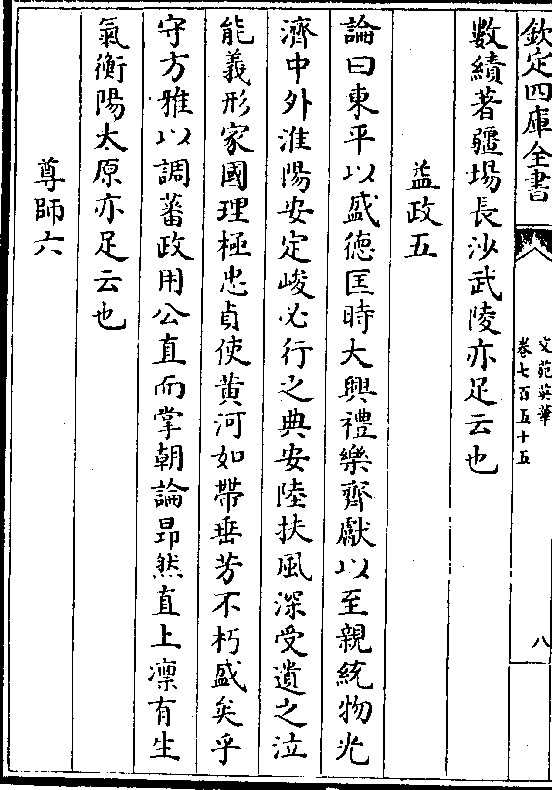 欽定四庫全書
文苑英華
卷七百五十五
八
數績著疆場長沙武陵亦足云也
益政五
論曰東平以盛徳匡時大興禮樂齊獻以至親統物光
濟中外淮陽安定峻必行之典安陸扶風深受遺之泣
能義形家國理極忠貞使黄河如帶垂芳不朽盛矣乎
守方雅以調蕃政用公直而掌朝論昂然直上凛有生
氣衡陽太原亦足云也
尊師六